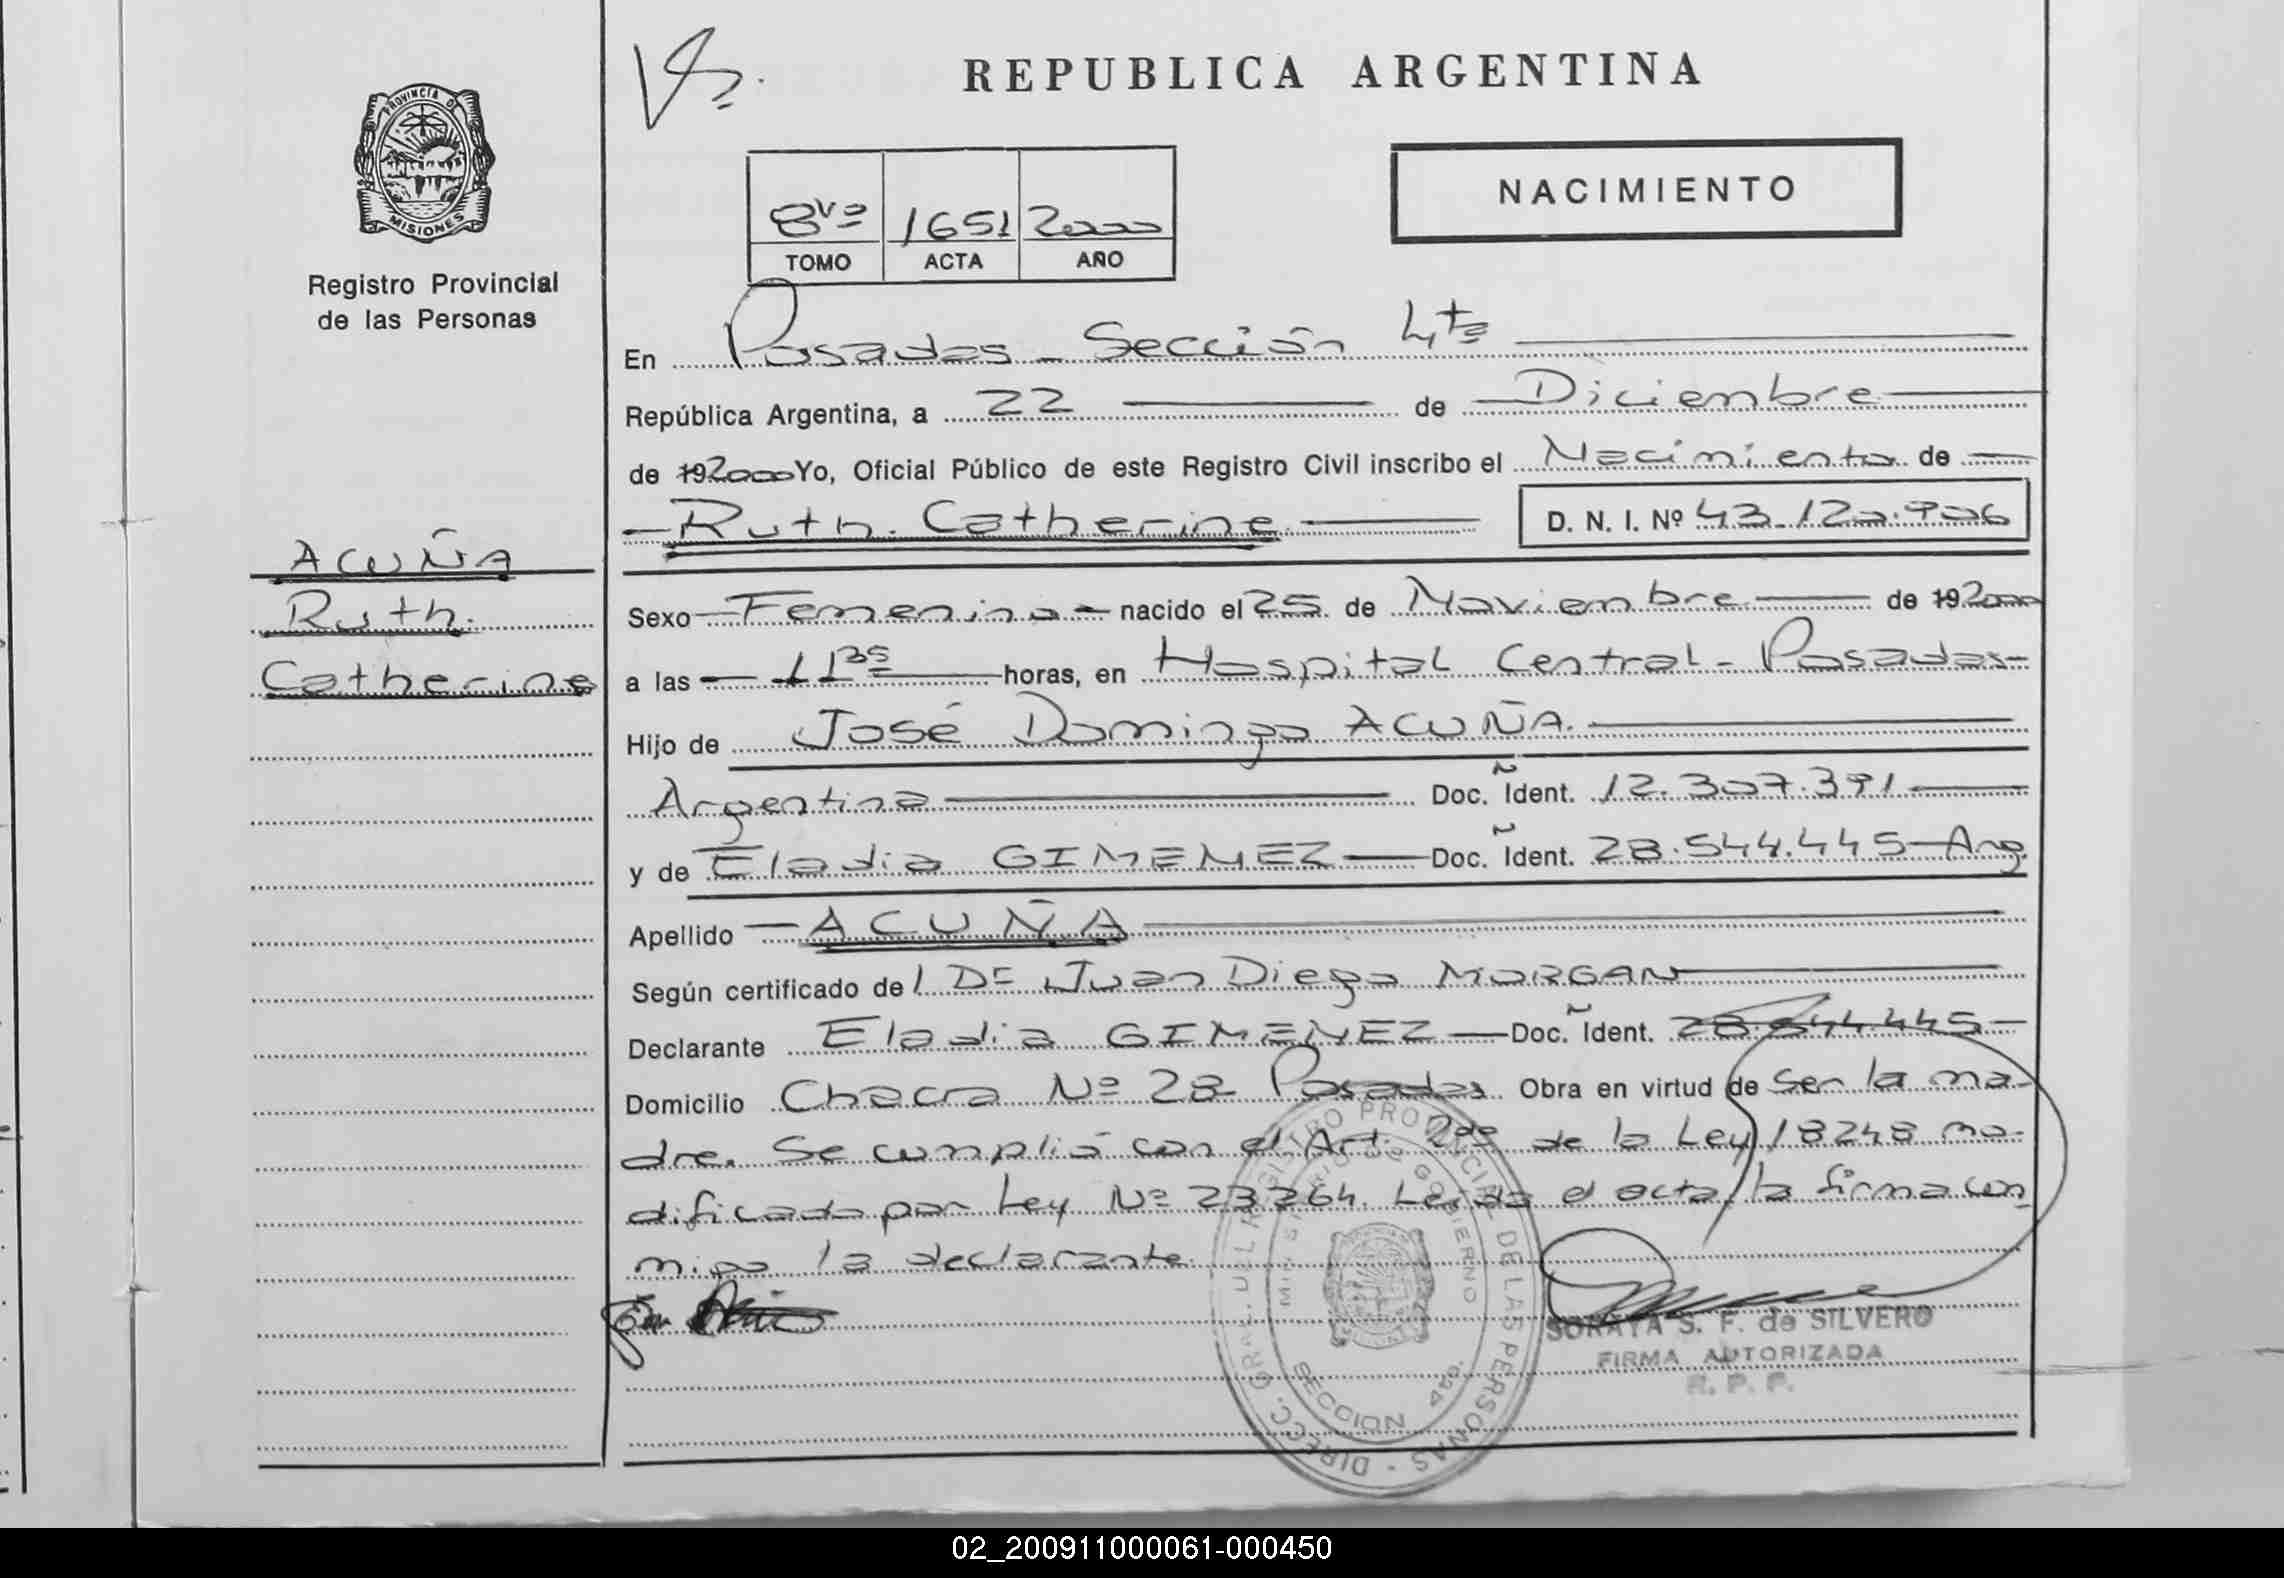 PROVINCIA DE
MISIONES
Registro Provincial
de las Personas
ACUÑA
Ruth.
Catherine
REPUBLICA ARGENTINA
8vo 1651 2000
TOMO ACTA AÑO
NACIMIENTO
En Posadas - Sección 4ta
República Argentina, a 22 de Diciembre
de 192000 Yo, Oficial Público de este Registro Civil inscribo el Nacimiento de
Ruth. Catherine. D. N. I. Nº 43.120.906
Sexo Femenino nacido el 25 de Noviembre de 192000
a las 11 35 horas, en Hospital Central - Posadas
Hijo de José Domingo ACUÑA.
Argentina Doc. Ident. 12.307.391
y de Eladia GIMENEZ Doc. Ident. 28.544.445 - Arg.
Apellido ACUÑA
Según certificado de l Dr Juan Diego MORGAN
Declarante Eladia GIMENEZ Doc. Ident. 28.544.445
Domicilio Chacra Nº 28 Posadas Obra en virtud de ser la ma-
dre. Se cumplió con el Art. 2do de la Ley 18248 mo-
dificado por Ley Nº 23264. Leída el acta, la firma con
migo la declarante.
DIRECC. GRAL. DEL REGISTRO PROVINCIAL DE LAS PERSONAS
MINISTERIO DE GOBIERNO
SECCION 4ta.
SORAYA S. F. de SILVERO
FIRMA AUTORIZADA
R. P. P.
02_200911000061-000450